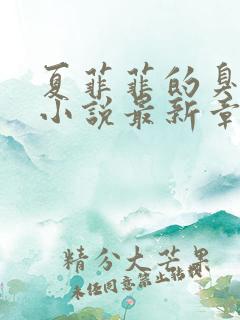 夏菲菲的臭
小说最新章
精分大芒果
未经同意禁止转载